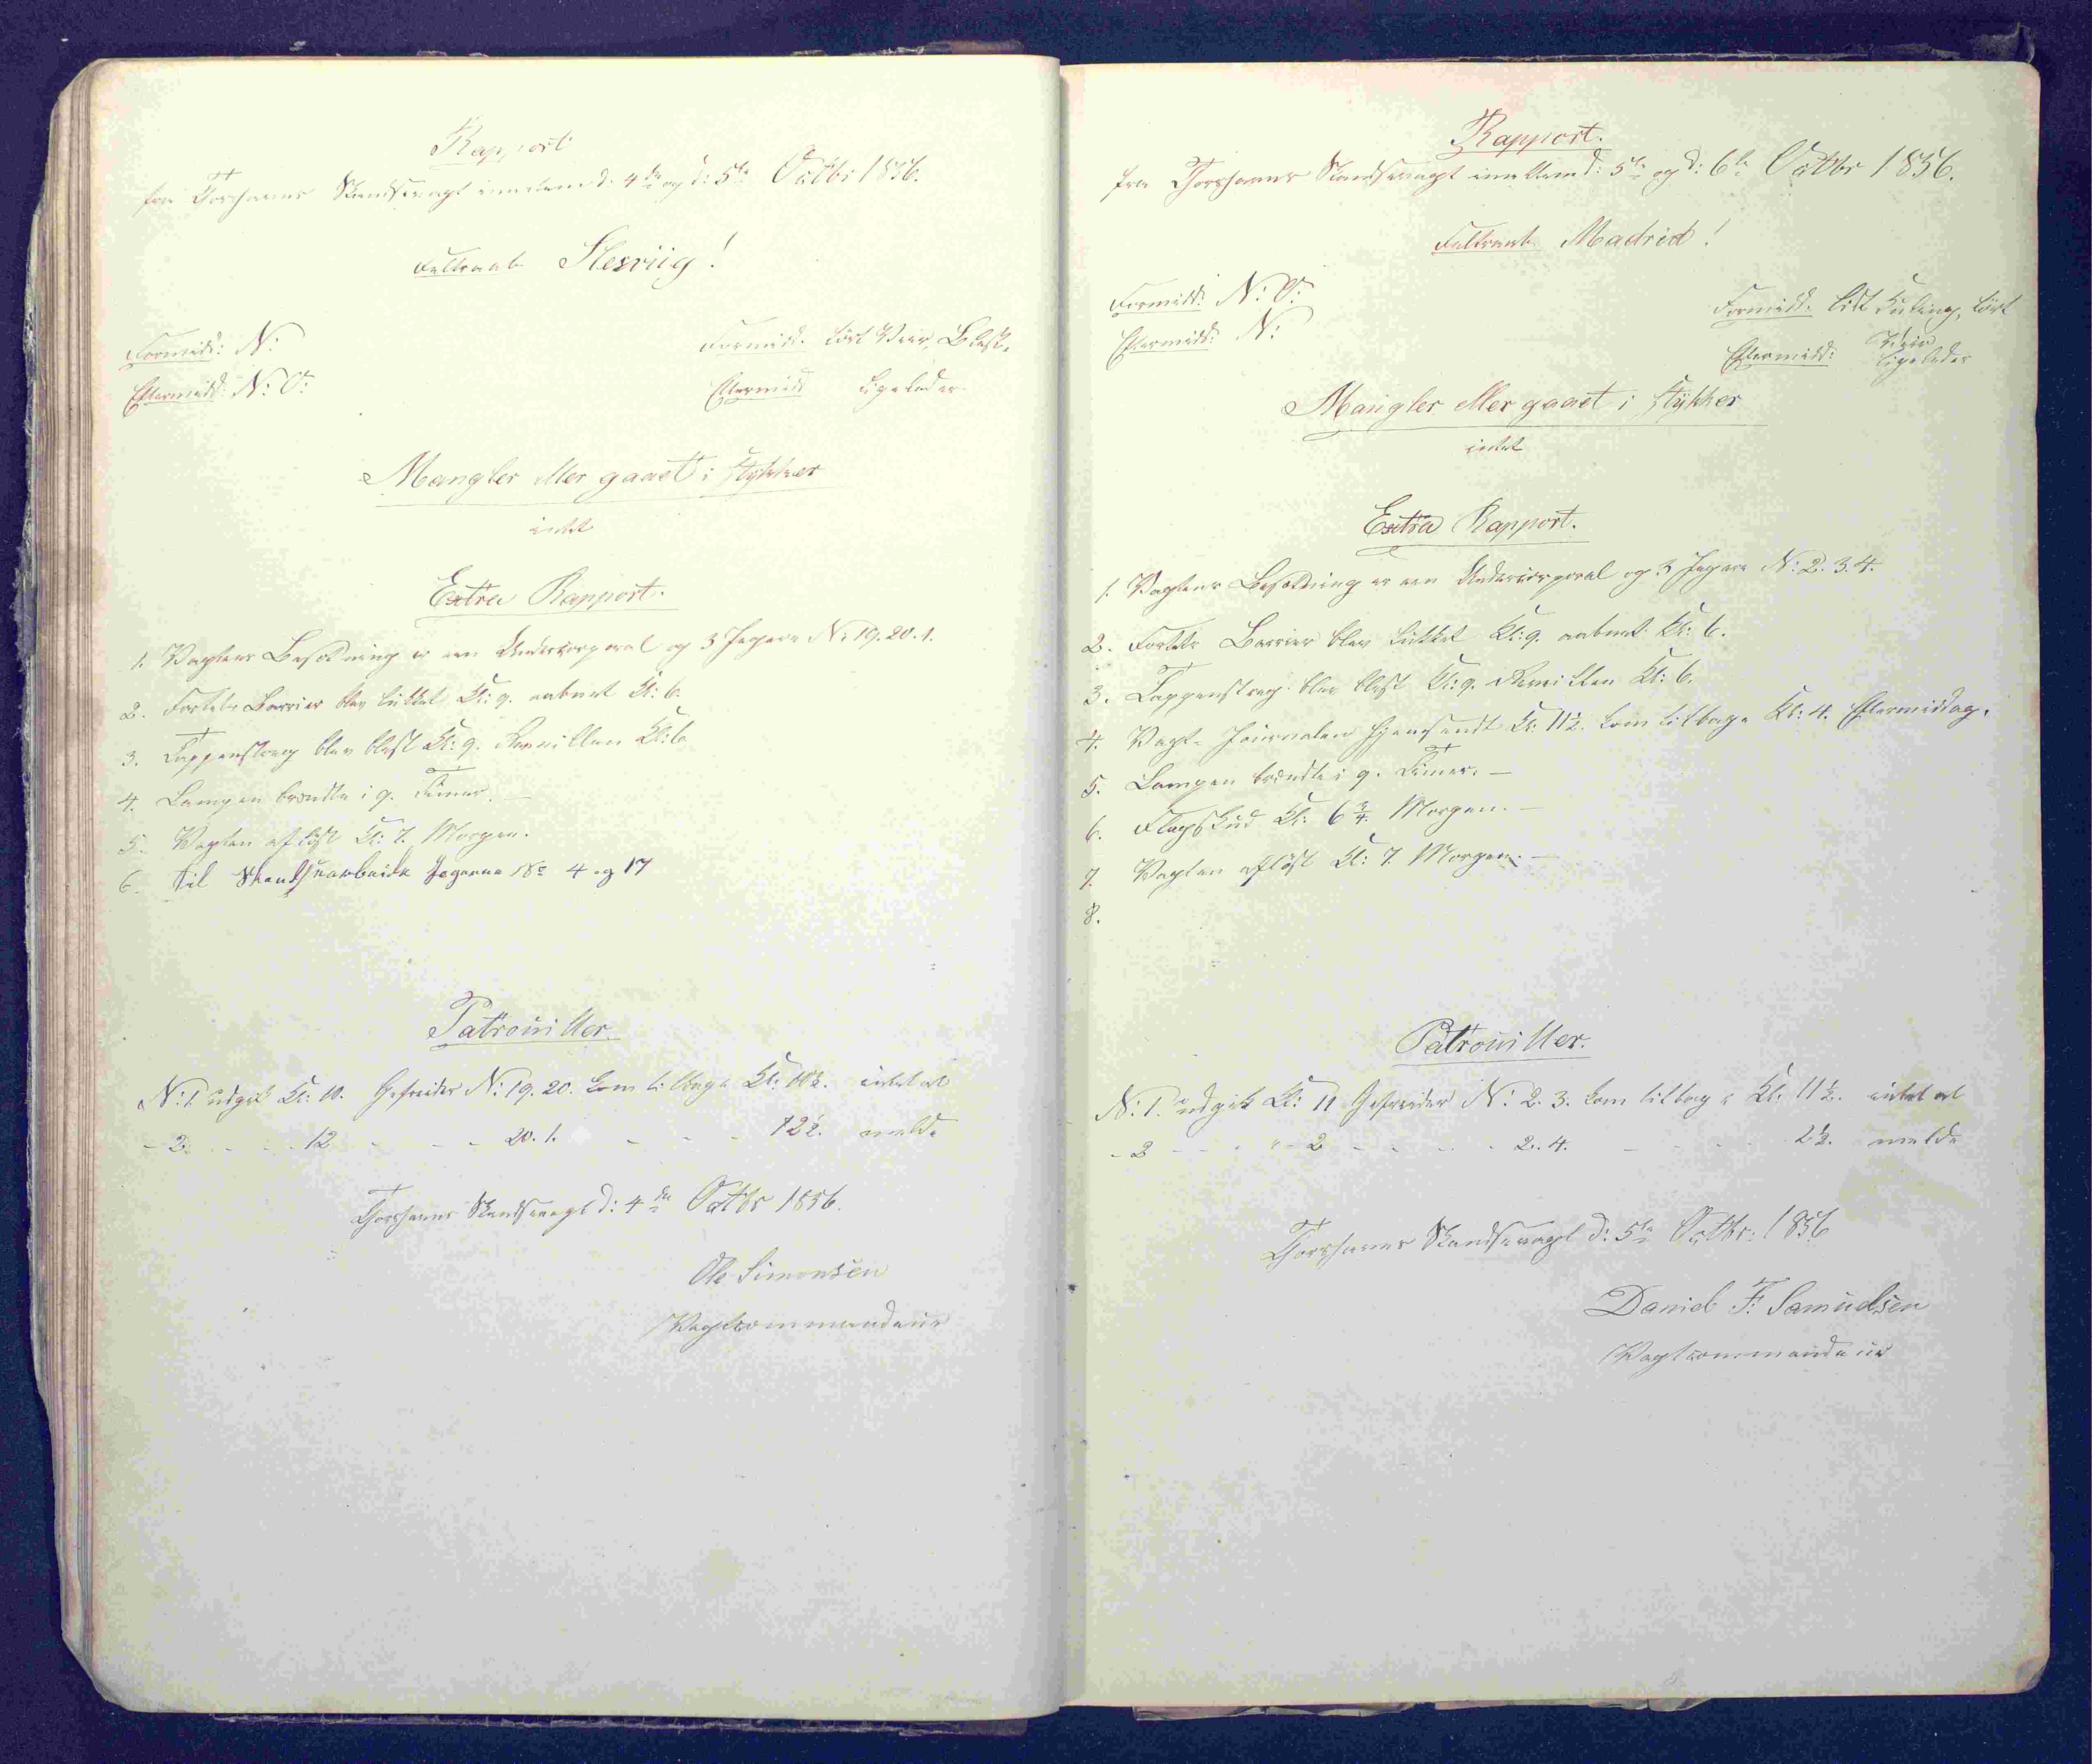 Rapport
fra Thorshavns Skandsevagt imellem d: 4de og d: 5te Octbr 1856.
Feltraab Slesviig!
Formidd: N:
Eftermidd: N: O:
Formidd. tört Veir, Blæst.
Eftermidd ligeledes.
Mangler eller gaaet i stykker
intet
Extra Rapport.
1. Vagtens Besætning er een Undercorporal og 3 Jægere N: 19. 20. 1.
2. Fortets Barrier blev lukket Kl: 9. aabnet Kl: 6.
3. Tappenstreg blev blæst Kl: 9. Reveillen Kl: 6
4. Lampen brændte i 9. Timer. —
5. Vagten aflöst Kl: 7. Morgen.
6. til Skandsearbeide Jægerne No 4 og 17
Patrouiller.
N: 1. udgik Kl: 10. Gefreider N: 19. 20. kom tilbage Kl: 10½. intet at
- 2. - - - 12 - - - 20. 1. - - - 12½. melde
Thorshavns Skandsevagt d: 4de Octbr 1856.
Ole Simonsen
Vagtcommandeur
Rapport.
fra Thorshavns Skandsevagt imellem d: 5te og d: 6te Octbr 1856.
Feltraab Madrid!
Formidd: N: O:
Eftermidd: N:
Formidd: lidt Kuling, tört
Veir
Eftermidd: ligeledes
Mangler eller gaaet i stykker
intet
Extra Rapport.
1. Vagtens Besætning er een Undercorporal og 3 Jægere N: 2. 3. 4.
2. Fortets Barrier blev lukket Kl: 9. aabnet Kl: 6.
3. Tappenstreg blev blæst Kl: 9. Reveillen Kl: 6.
4. Vagt- Journalen hjemsendt Kl: 11½. kom tilbage Kl: 4. Eftermiddag.
5. Lampen brændte i 9. Timer. —
6. Flagskud Kl: 6¾ Morgen. —
7. Vagten aflöst Kl: 7 Morgen. —
8.
Patrouiller.
N: 1. udgik Kl: 11 Gefreider N: 2. 3. kom tilbage Kl. 11½. intet at
- 2 - - - " - 2 - - - - 2. 4. - - - 2½. melde
Thorshavns Skandsevagt d: 5te Octbr: 1856
Daniel F. Samuelsen
Vagtcommandeur